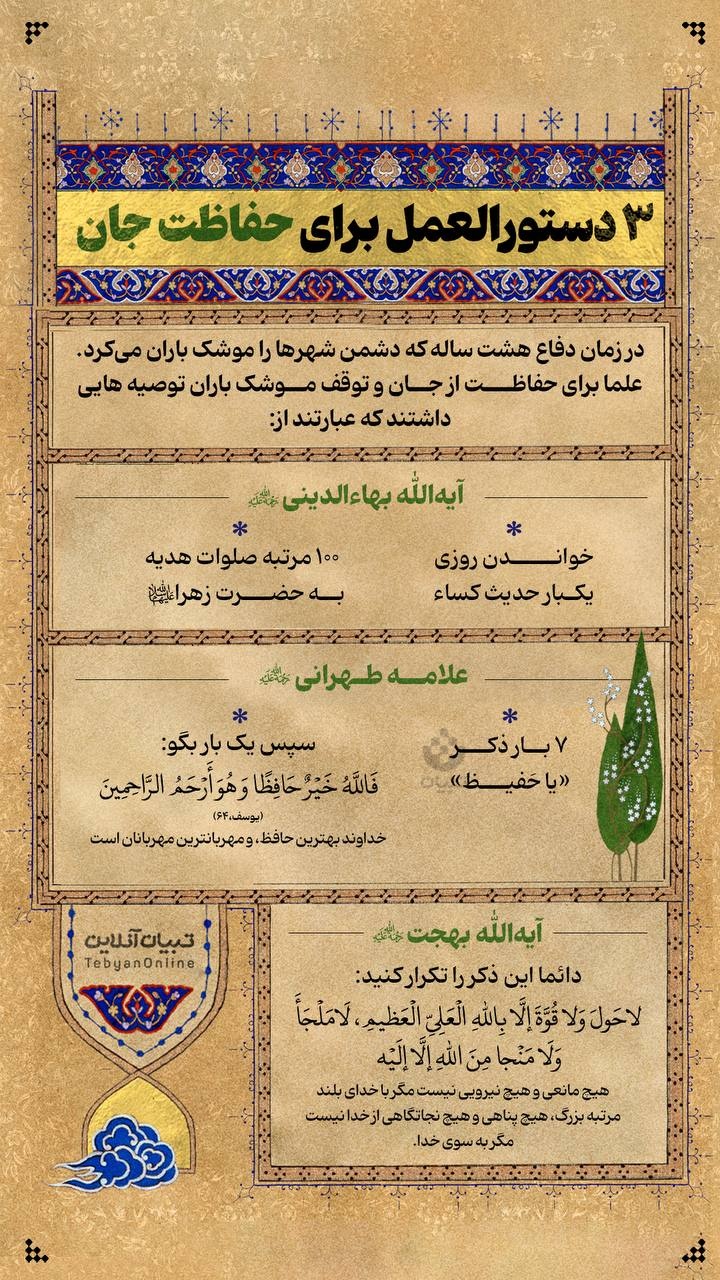 ۳ دستورالعمل برای حفاظت جان
در زمان دفاع هشت ساله که دشمن شهرها را موشک باران می‌کرد.
علما برای حفاظت از جان و توقف موشک باران توصیه هایی
داشتند که عبارتند از:
آیه‌الله بهاءالدینی
خواندن روزی
یکبار حدیث کساء
۱۰۰ مرتبه صلوات هدیه
به حضرت زهرا
علامه طهرانی
۷ بار ذکر
«یا حَفیظ»
سپس یک بار بگو:
فَاللَّهُ خَيْرٌ حَافِظًا وَهُوَ أَرْحَمُ الرَّاحِمِينَ
(یوسف،۶۴)
خداوند بهترین حافظ، و مهربانترین مهربانان است
آیه‌الله بهجت
دائما این ذکر را تکرار کنید:
لاحَولَ وَلا قُوَّةَ إلَّا بِاللهِ الْعَلِيِّ الْعَظيمِ، لَامَلْجَأَ
وَلَا مَنْجا مِنَ اللهِ إلَّا إلَيْه
هیچ مانعی و هیچ نیرویی نیست مگر با خدای بلند
مرتبه بزرگ، هیچ پناهی و هیچ نجاتگاهی از خدا نیست
مگر به سوی خدا.
تبیان آنلاین
TebyanOnline